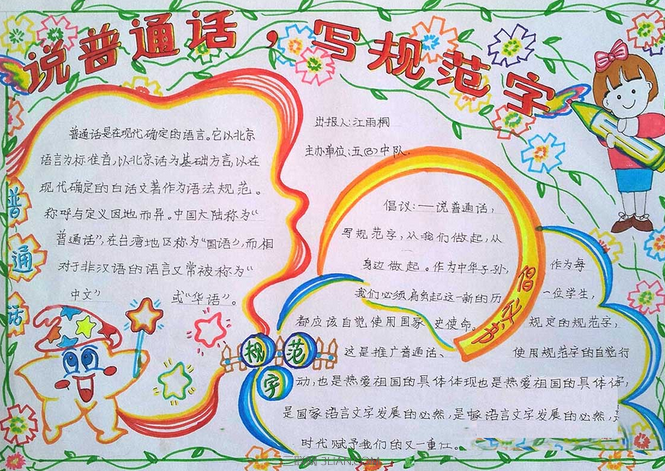 说普通话，写规范字
出报人：江雨桐
主办单位：五(8)中队
普通话是在现代确定的语言。它以北京
语言为标准音，以北京话为基础方言，以在
现代确定的白话文著作为语法规范。
称呼与定义因地而异。中国大陆称为“
普通话”，在台湾地区称为“国语”，而相
对于非汉语的语言又常被称为“
中文” 或“华语”。
普通话
规范字
倡议：一说普通话，
写规范字，从我们做起，从
身边做起。作为中华子孙，
我们必须肩负起这一新的历
史使命。
倡议书
作为每
一位学生，
都应该自觉使用国家 规定的规范字，
这是推广普通话、 使用规范字的自觉行
动，也是热爱祖国的具体体现也是热爱祖国的具体体
是国家语言文字发展的必然，是 语言文字发展的必然，
时代赋予我们的又一重
3LIAN.COM